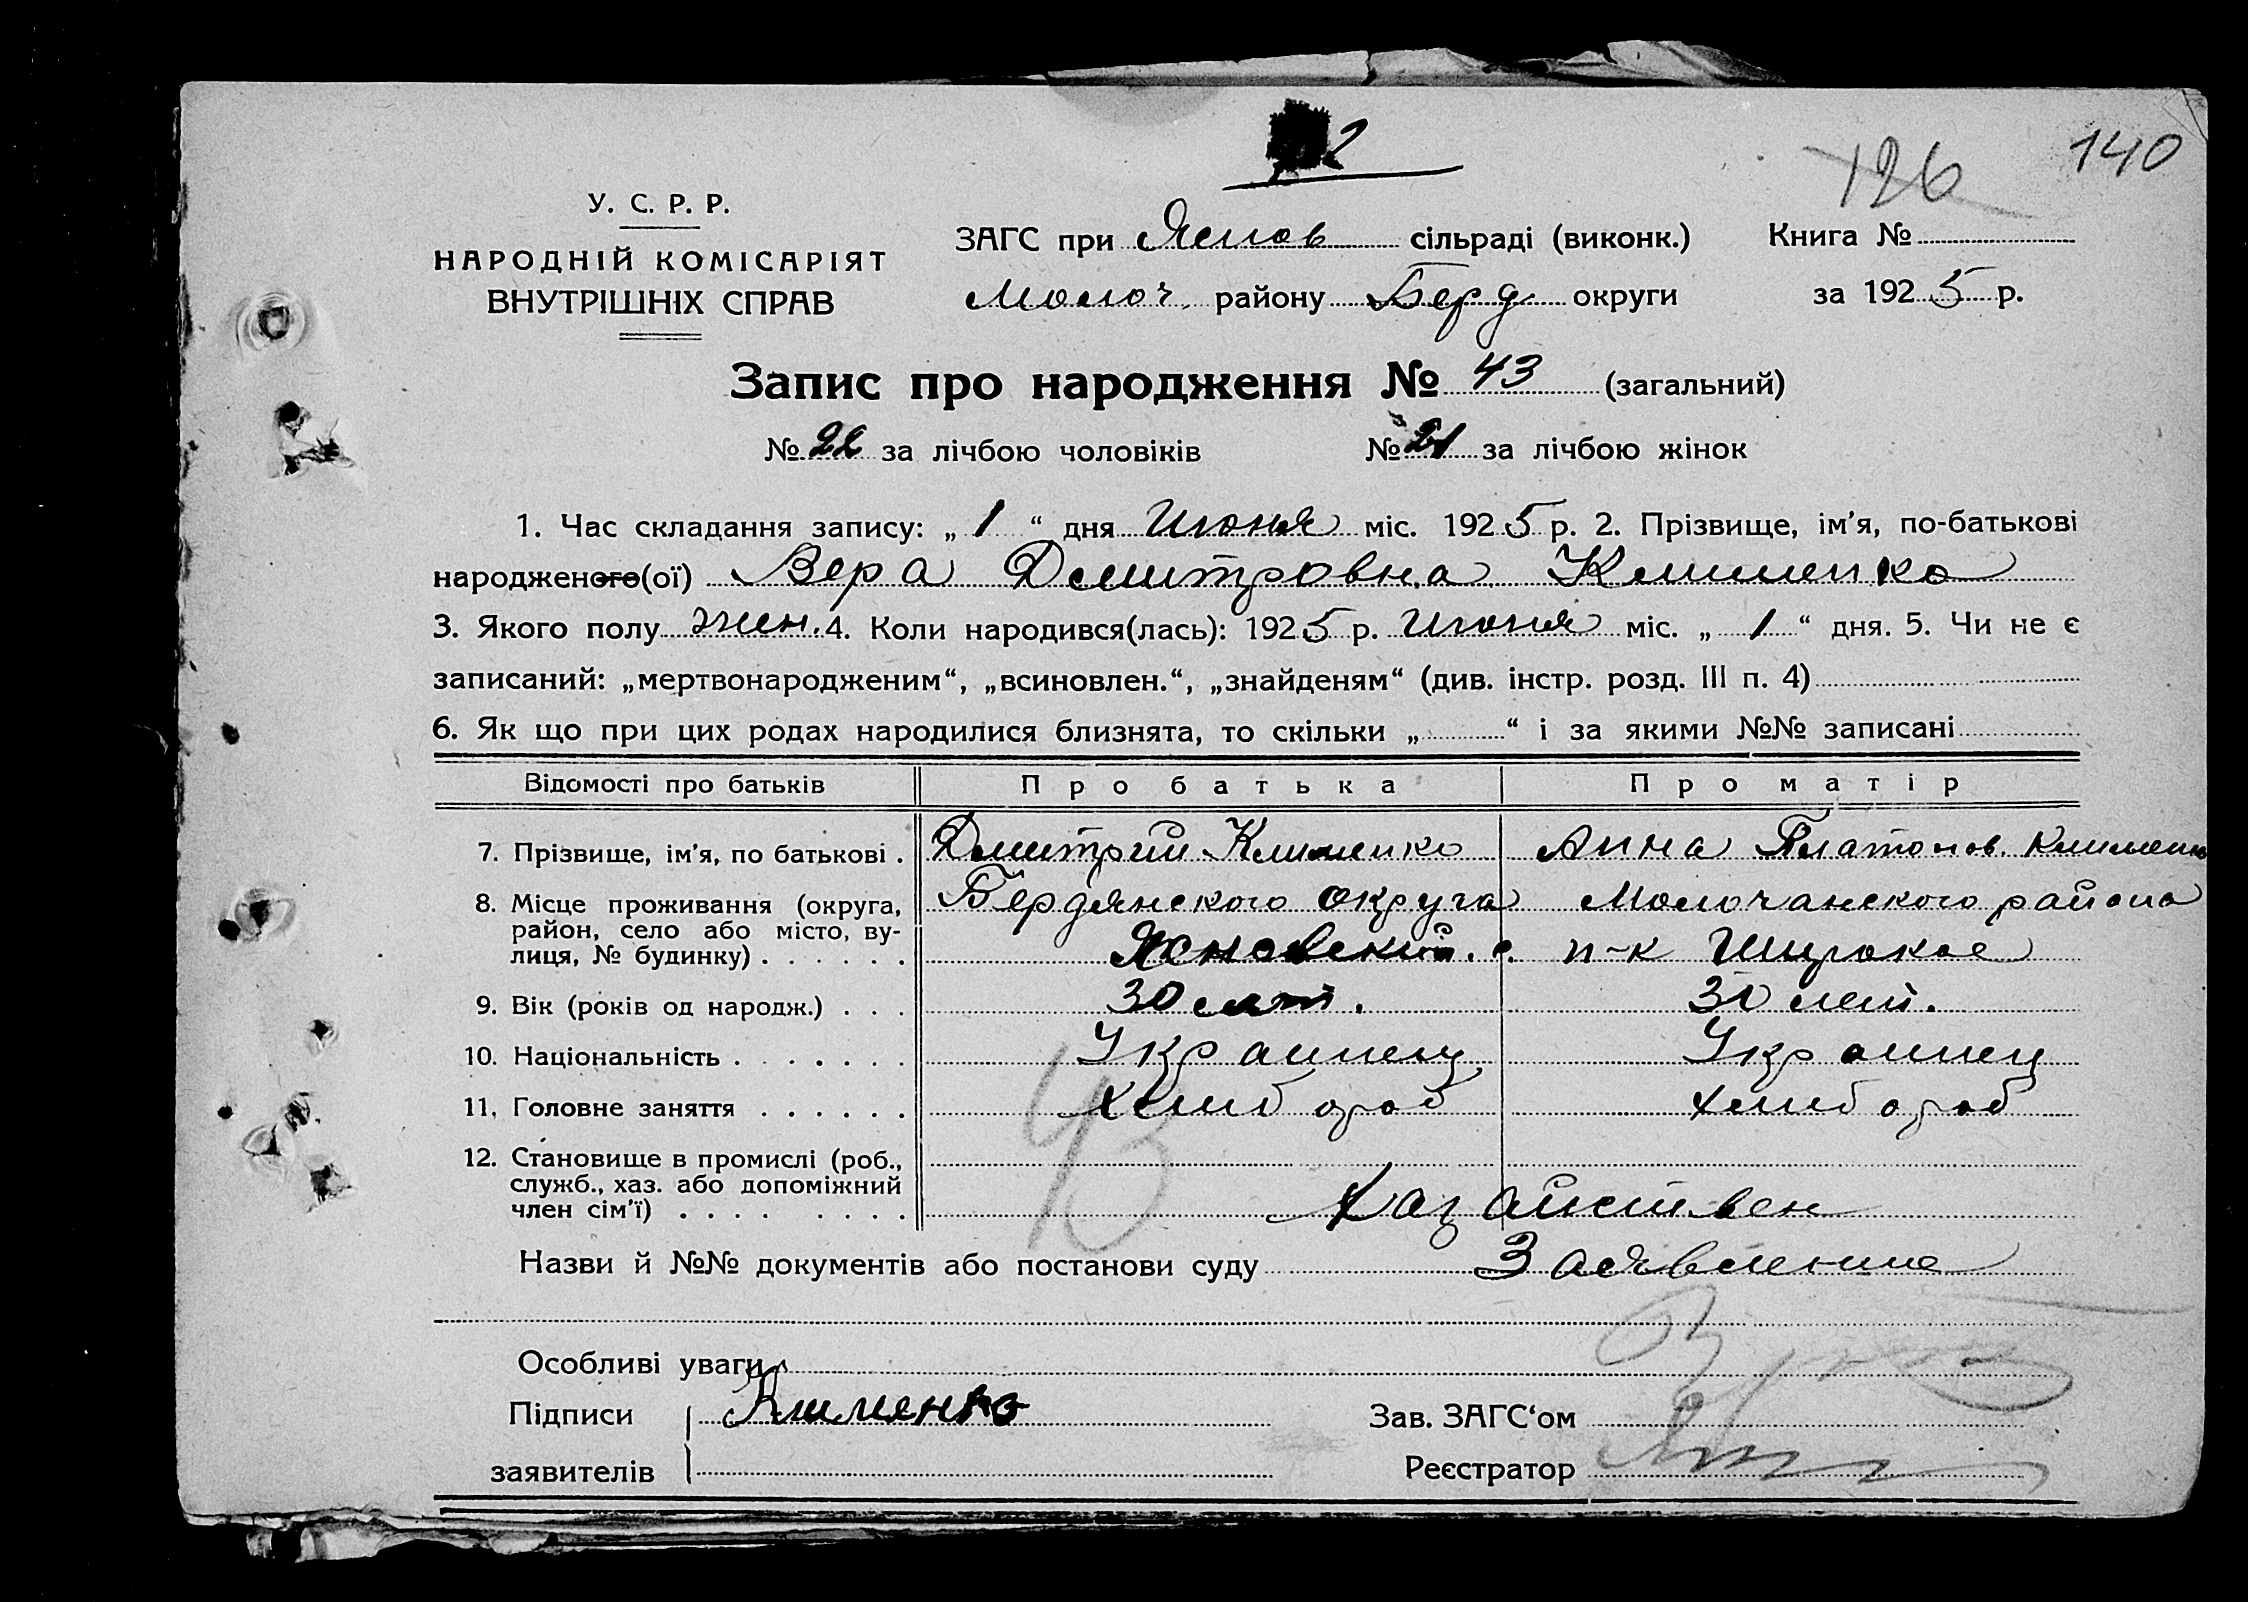 2
126
140
У. С. Р. Р.
НАРОДНІЙ КОМІСАРІЯТ
ВНУТРІШНІХ СПРАВ
ЗАГС при Яснов сільраді (виконк.) Книга №
Молоч. району Берд округи за 1925 р.
Запис про народження № 43 (загальний)
№ 22 за лічбою чоловіків № 21 за лічбою жінок
1. Час складання запису: „ 1 “ дня Июня міс. 1925 р. 2. Прізвище, ім'я, по-батькові
народженого(ої) Вера Дмитровна Клименко
3. Якого полу жен. 4. Коли народився(лась): 1925 р. Июня міс. „ 1 “ дня. 5. Чи не є
записаний: „мертвонародженим“, „всиновлен.“, „знайденям“ (див. інстр. розд. III п. 4)
6. Як що при цих родах народилися близнята, то скільки „ “ і за якими №№ записані
Відомості про батьків Про батька Про матір
7. Прізвище, ім'я, по батькові . Дмитрий Клименко Анна Платонов. Клименко
8. Місце проживання (округа, Бердянского округа Молочанского района
район, село або місто, ву-
лиця, № будинку) . . . . . . Ясновский. с. п-к Широкое
9. Вік (років од народж.) . . . 30 лет. 30 лет.
10. Національність . . . . . . . Украинец Украинец
11. Головне заняття . . . . . . Хлибороб Хлибороб
43
12. Становище в промислі (роб.,
служб., хаз. або допоміжний
член сім'ї) . . . . . . . . Хазайствен
Назви й №№ документів або постанови суду Заявление
Особливі уваги
Підписи Клименко Зав. ЗАГС‘ом
заявителів Реєстратор